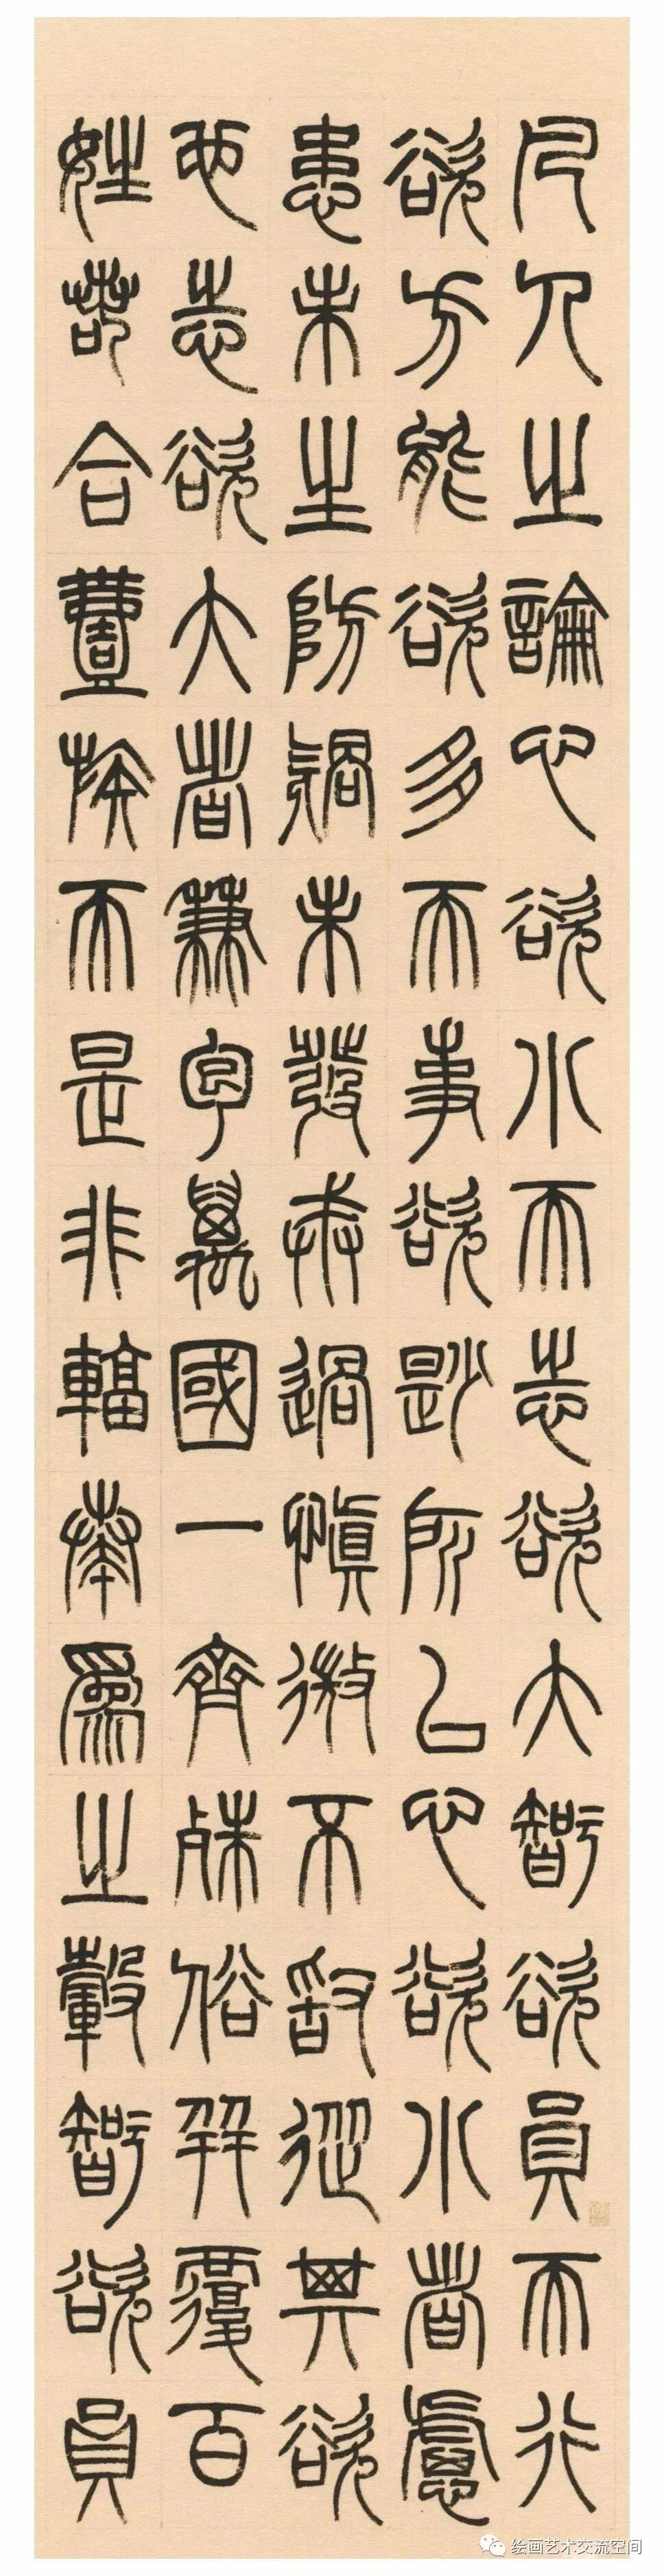 凡人之論心欲小而志欲大智欲員而行
欲方能欲多而事欲尟所以心欲小者慮
患未生防禍未發戒過慎微不敢從其欲
也志欲大者兼包萬國一齊殊俗并覆百
姓若合壹族而是非輻奏為之轂智欲員
绘画艺术交流空间